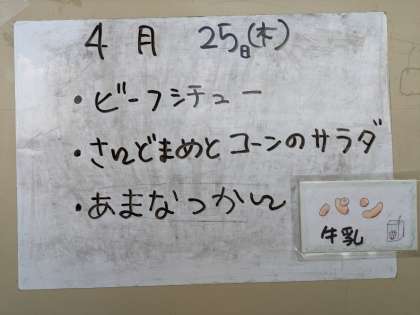 4月 25日(木)
・ビーフシチュー
・さいどまめとコーンのサラダ
・あまなつかい
パン
牛乳